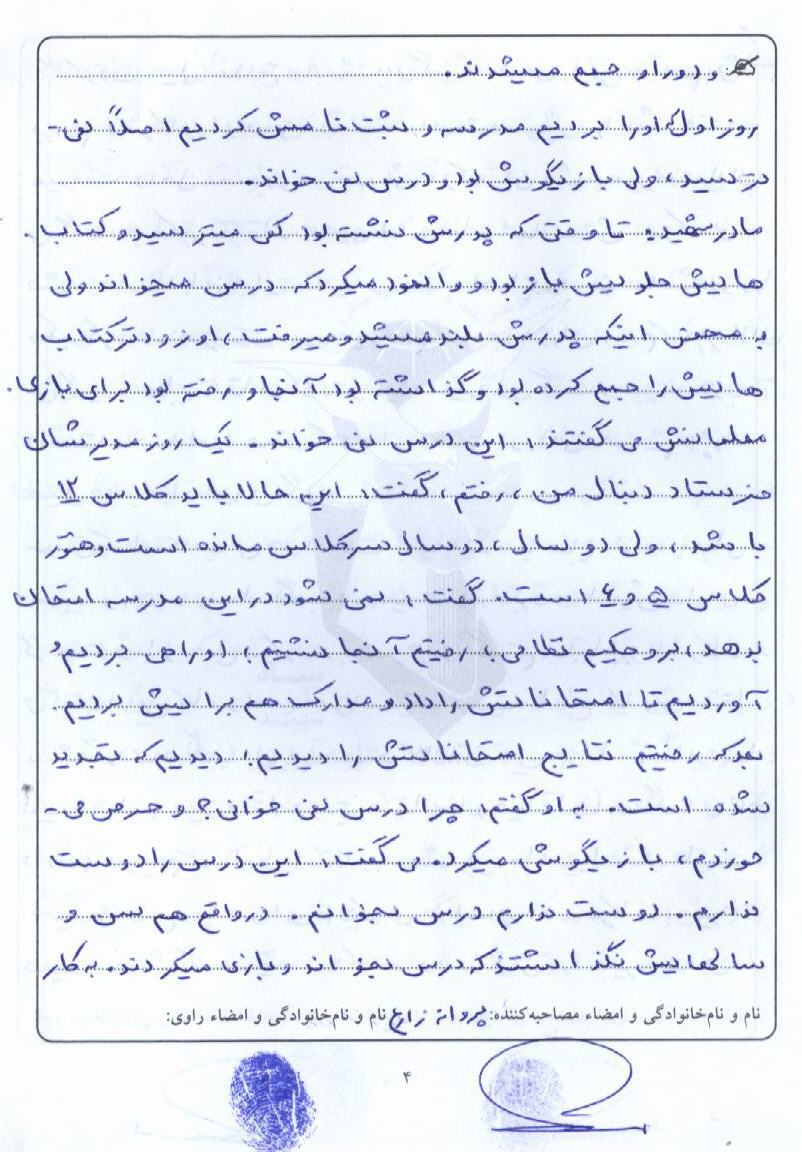 و دور او جمع میشدند.
روز اول که اورا بردیم مدرسه و ثبت نامش کردیم اصلاً نمی-
ترسید، ولی بازیگوش بود و درس نمی خواند.
مادر شهید: تا وقتی که پدرش نشسته بود کمی میترسید و کتاب
هایش جلویش باز بود و وانمود میکرد که درس میخواند ولی
به محض اینکه پدرش بلند میشد و میرفت، او زودتر کتاب
هایش را جمع کرده بود و گذاشته بود آنجا و رفته بود برای بازی.
معلمانش می گفتند: این درس نمی خواند. یک روز مدیرشان
فرستاد دنبال من، رفتم، گفت: این حالا باید کلاس ۱۲
باشد، ولی دو سال، دو سال سر کلاس مانده است و هنوز
کلاس ۵ و ۶ است. گفت: نمی شود در این مدرسه امتحان
بدهد، برو حکیم نظامی، رفتیم آنجا نشستیم، او را می بردیم و
آوردیم تا امتحاناتش را داد و مدارک هم برایش بردیم.
بعد که رفتیم نتایج امتحاناتش را دیدیم؛ دیدیم که تجدید
شده است. به او گفتم: چرا درس نمی خوانی؟ و حرص می-
خوردم، بازیگوشی میکرد. می گفت: این درس را دوست
ندارم. دوست ندارم درس بخوانم. در واقع هم سن و
سالهایش نگذاشتند که درس بخواند و بازی میکردند. به کار
نام و نام‌خانوادگی و امضاء مصاحبه‌کننده: پروانه زارع نام و نام‌خانوادگی و امضاء راوی:
۴